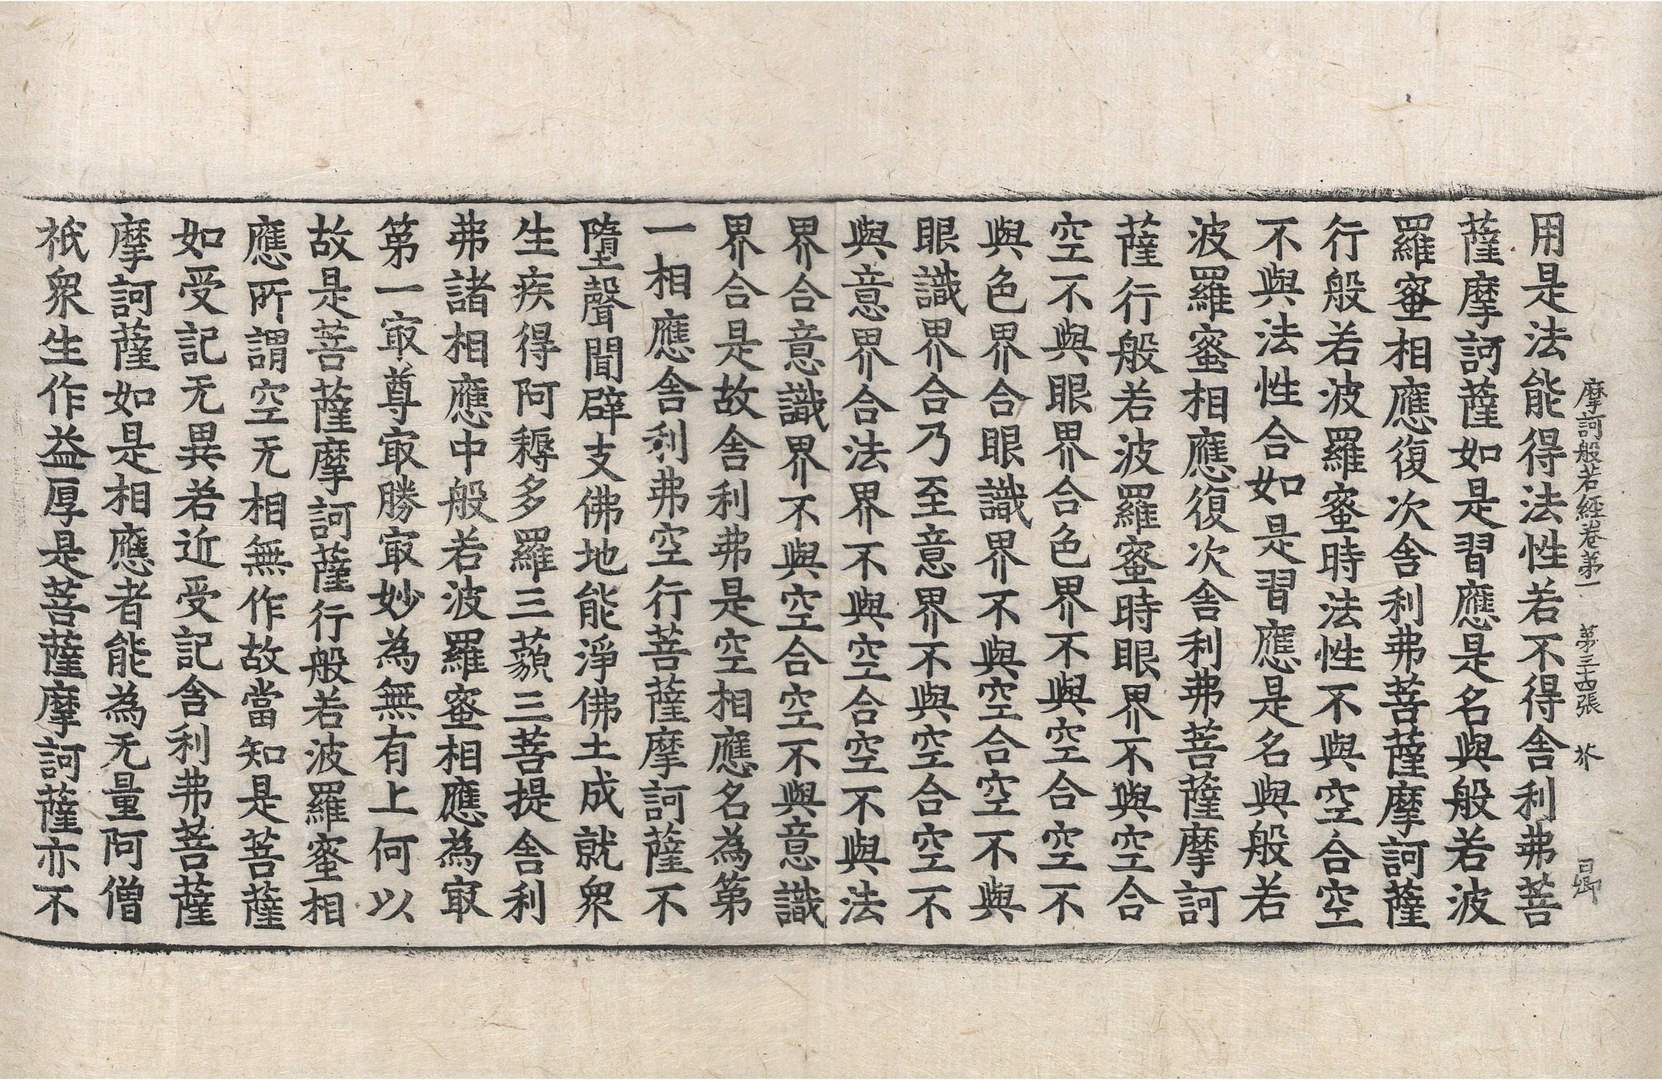 摩訶般若經卷第一 第三十四張 芥
用是法能得法性若不得舎利弗菩
薩摩訶薩如是習應是名與般若波
羅蜜相應復次舎利弗菩薩摩訶薩
行般若波羅蜜時法性不與空合空
不與法性合如是習應是名與般若
波羅蜜相應復次舎利弗菩薩摩訶
薩行般若波羅蜜時眼界不與空合
空不與眼界合色界不與空合空不
與色界合眼識界不與空合空不與
眼識界合乃至意界不與空合空不
與意界合法界不與空合空不與法
界合意識界不與空合空不與意識
界合是故舎利弗是空相應名為第
一相應舎利弗空行菩薩摩訶薩不
墮聲聞辟支佛地能淨佛土成就衆
生疾得阿耨多羅三藐三菩提舎利
弗諸相應中般若波羅蜜相應為㝡
第一㝡尊㝡勝㝡妙為無有上何以
故是菩薩摩訶薩行般若波羅蜜相
應所謂空无相無作故當知是菩薩
如受記无異若近受記舎利弗菩薩
摩訶薩如是相應者能為无量阿僧
祇衆生作益厚是菩薩摩訶薩亦不